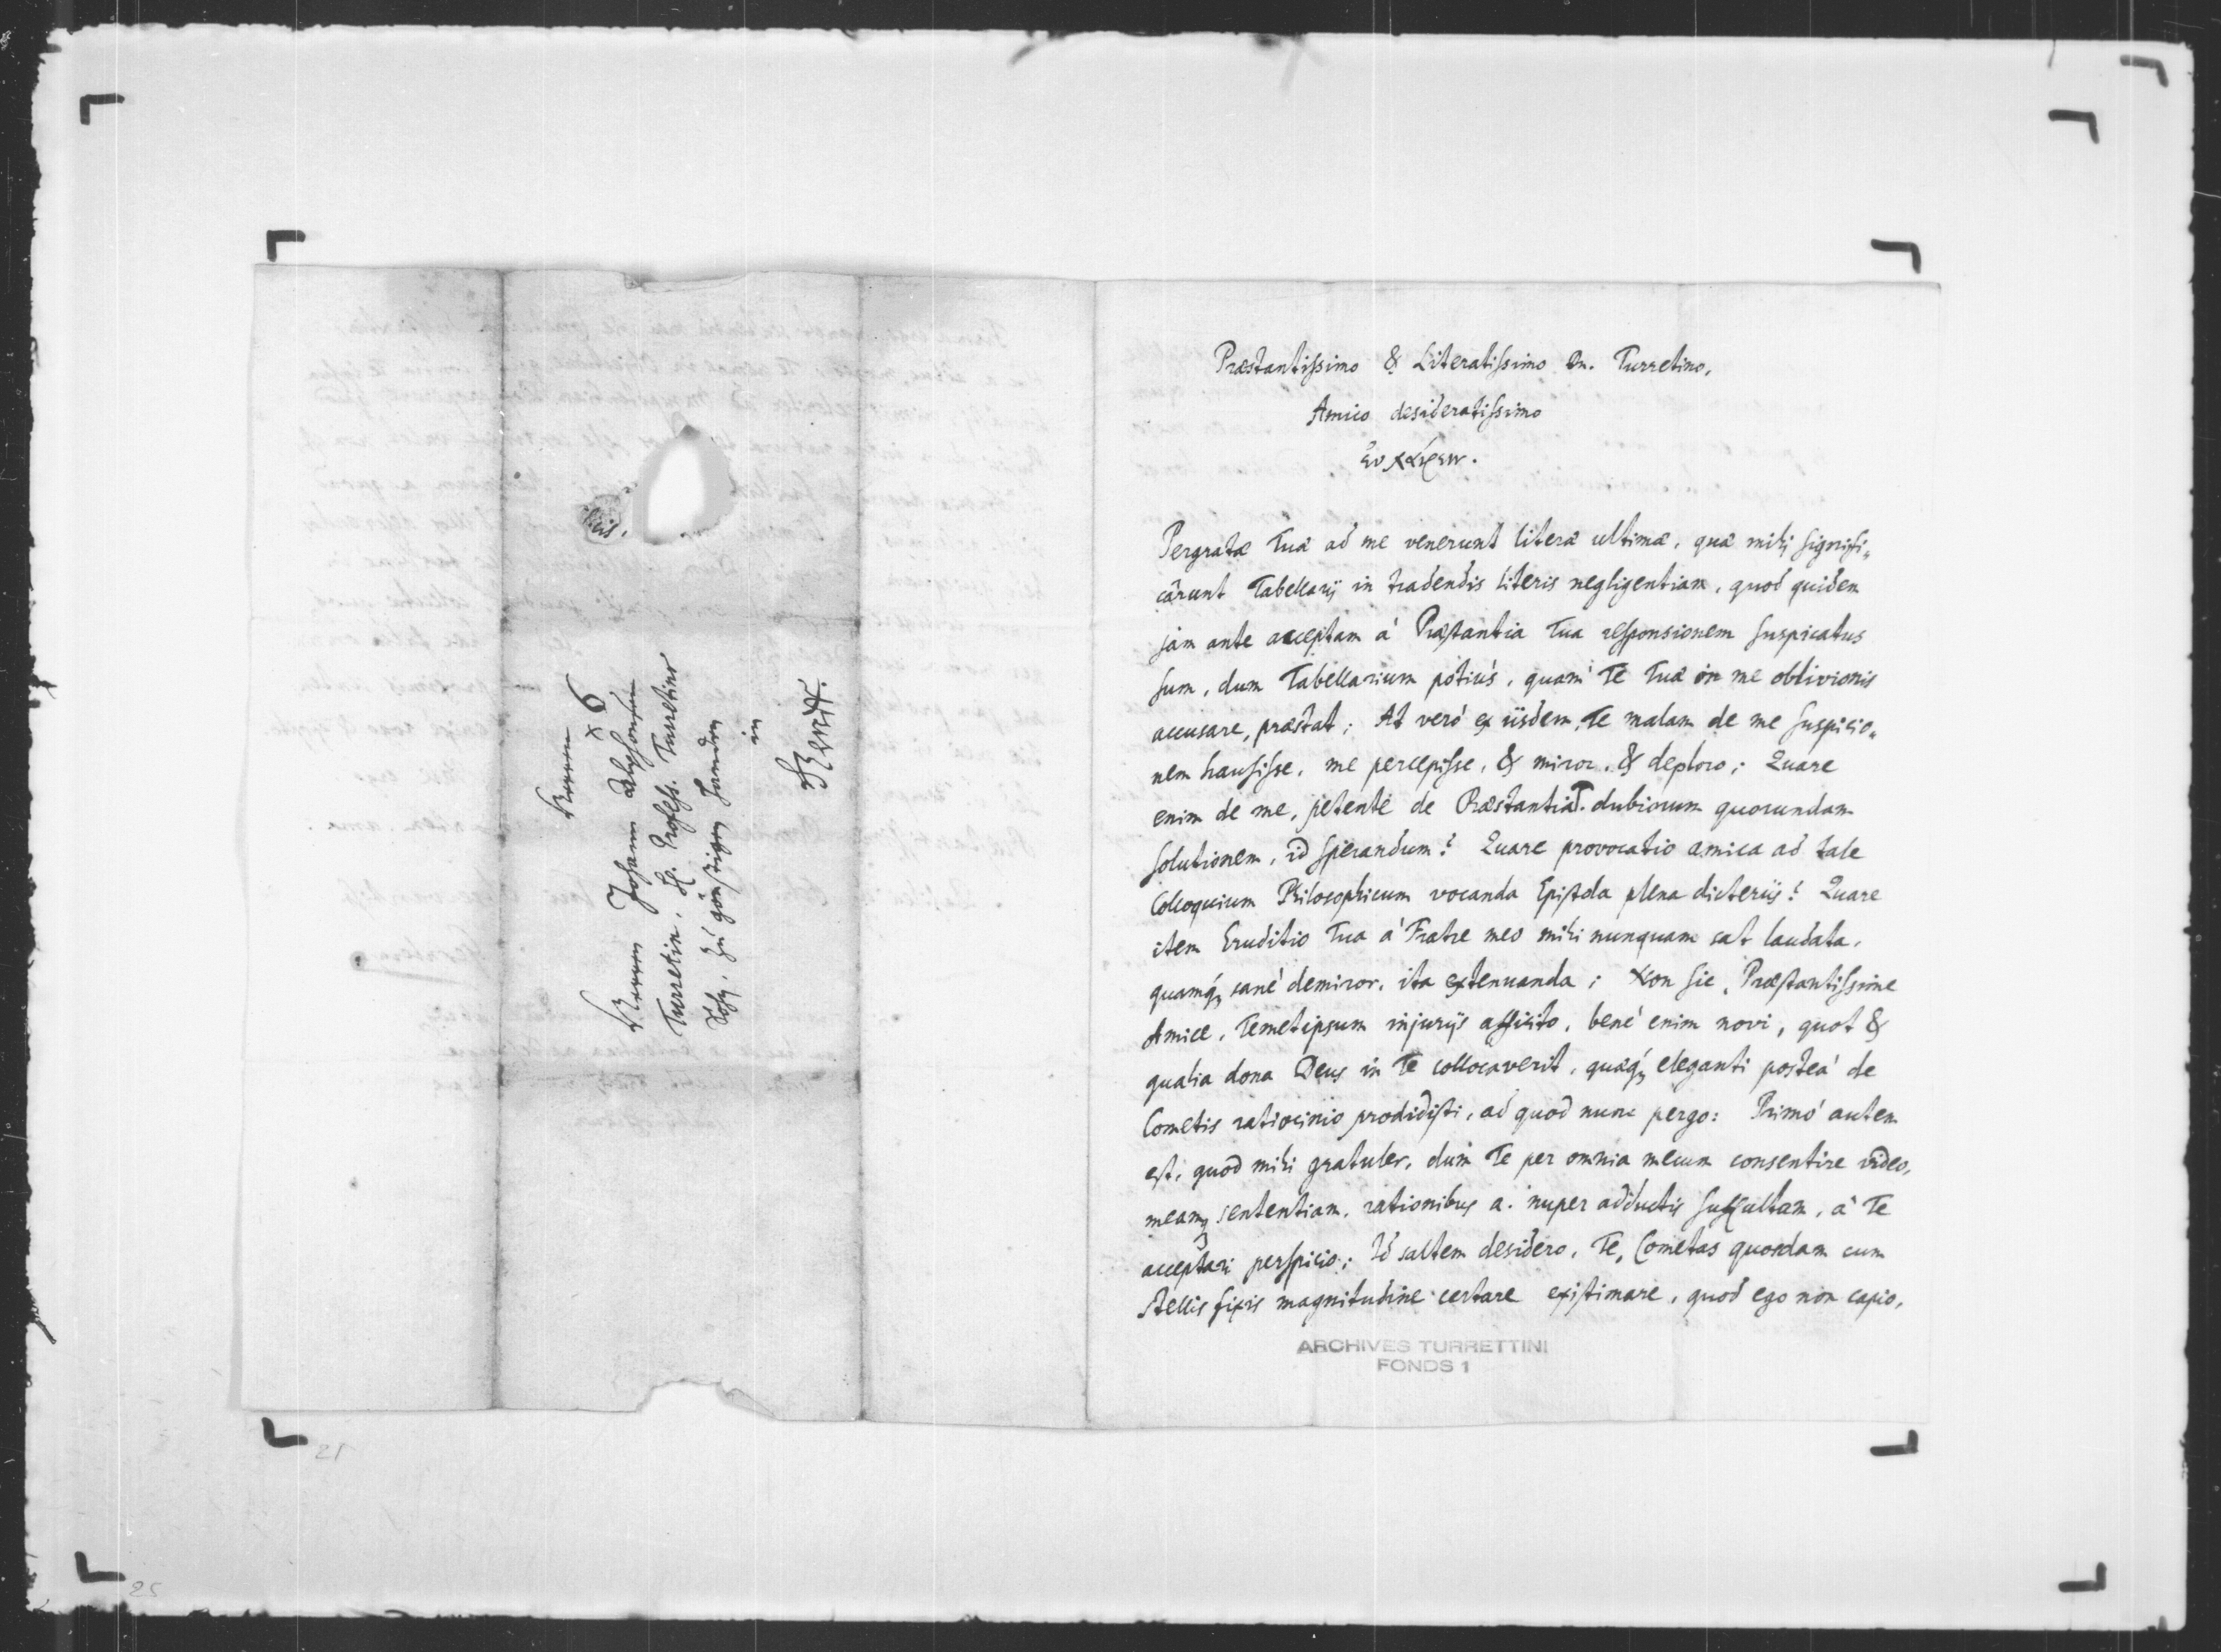 Herren
Herren Johann Alphonsen
Turretin, H. Profess. Turretins
Sohn, zu günstigen Handen
in
Genff.
6
Præstantissimo & Literatissimo Dn. Turretino,
Amico desideratissimo
ἐυ χαίρειν.
Pergratæ Tuæ ad me venerunt literæ ultimæ, quæ mihi signifi„
cârunt Tabellarij in tradendis literis negligentiam, quod quidem
jam ante acceptam à Præstantia Tua responsionem suspicatus
sum, dum Tabellarium potiùs, quàm Te Tuæ in me oblivionis
accusare, præstat; At verò ex iisdem, Te malam de me suspicio„
nem hausisse, me percepisse, & miror, & deploro; Quare
enim de me, petente de Præstantia T. dubiorum quorundam
solutionem, id sperandum? Quare provocatio amica ad tale
Colloquium Philosophicum vocanda Epistola plena dicteriis? Quare
item Eruditio Tua à Fratre meo mihi nunquam sat laudata,
quamq; sanè demiror, ita extenuanda; Non sic, Præstantissime
Amice, Temetipsum injurijs afficito, benè enim novi, quot &
qualia dona Deus in Te collocaverit, quæq; eleganti posteà de
Cometis ratiocinio prodidisti, ad quod nunc pergo: Primò autem
est, quod mihi gratuler, dum Te per omnia mecum consentire video,
meamq; sententiam, rationibus a. nuper adductis suffultam, à Te
acceptari perspicio; Id saltem desidero, Te, Cometas quosdam cum
stellis fixis magnitudine certare existimare, quod ego non capio,
ARCHIVES TURRETTINI
FONDS 1
21
25